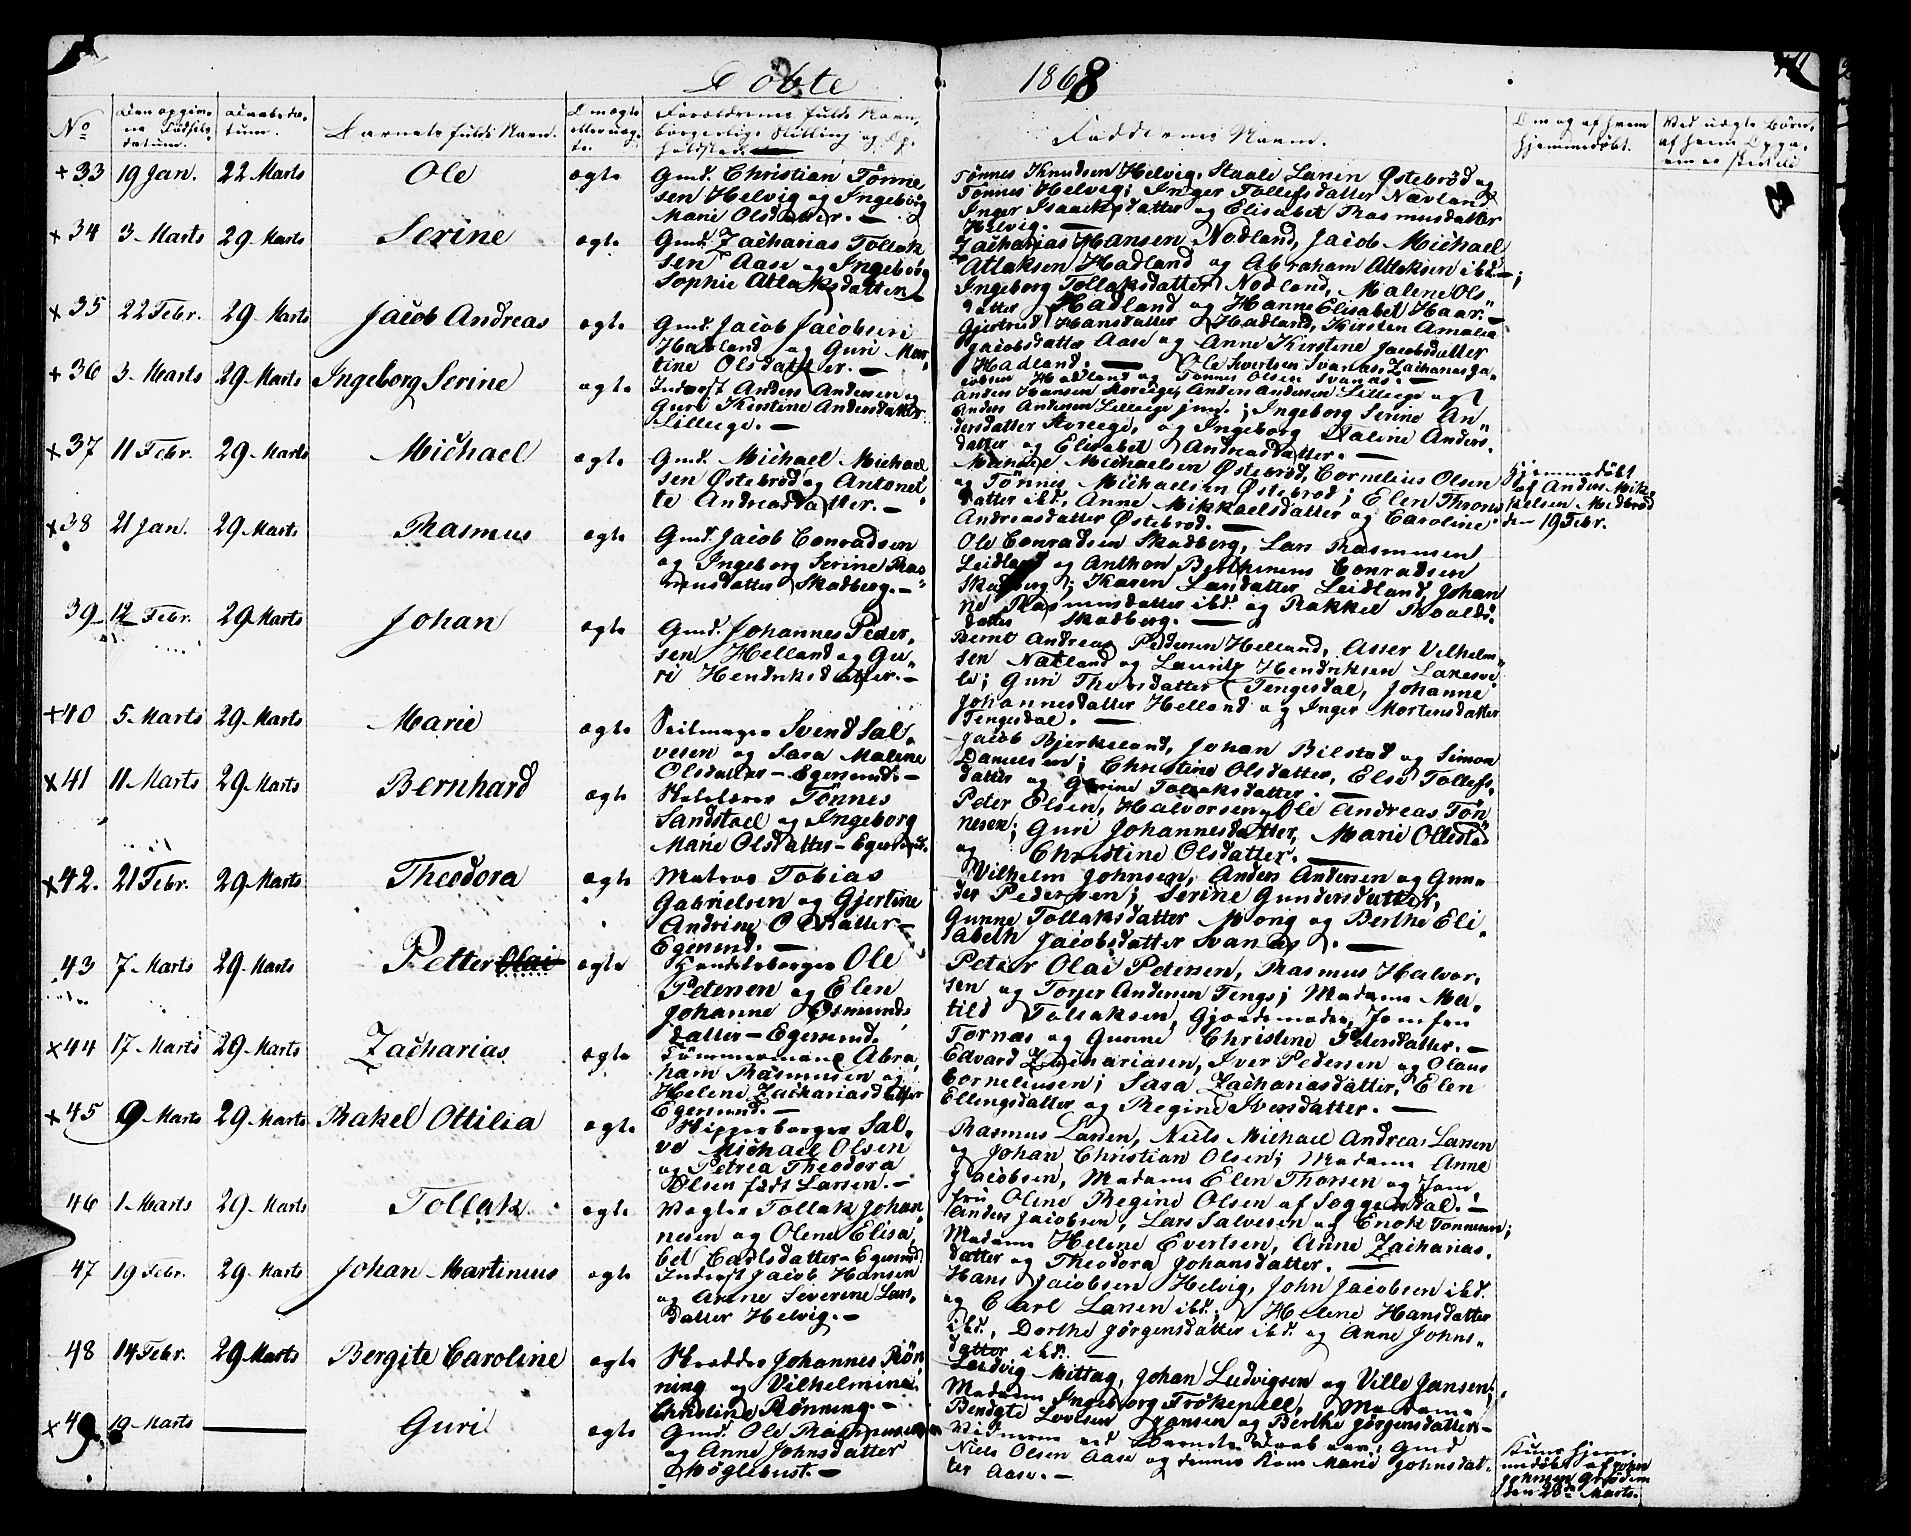 Døbte 1868
No
Den opgivne Fødselsdatum.
Daabsdatum.
Barnets fulde Navn.
Om ægte eller uægte.
Forældrenes fulde Navn, borgerlige Stilling og Opholdsted
Faddernes Navn.
Om og af hvem hjemmedøbt.
Ved uægte Børn,
+33 19 Jan. 22 Marts Ole ægte
Gmd. Christian Tønne
sen Helvig og Ingeborg
Marie Olsdatter. —
Tønnes Knudsen Helvig, Staale Larsen Østebrød og
Tønnes Helvig; Inger Tollefsdatter Nævland
Inger Isaachsdatter og Elisabet Rasmusdatter
Helvig. —
x34 3 Marts 29 Marts Serine ægte
Gmd. Zacharias Tollak
sen Aase og Ingeborg
Sophie Atlaksdatter
Zacharias Hansen Nodland, Jacob Michael
Atlaksen Hadland og Abraham Atlaksen ibd. —;
Ingeborg Tollaksdatter Nodland, Malene Ols"
datter Hadland og Hanne Elisabet Haar. —
x35 22 Febr. 29 Marts Jacob Andreas ægte
Gmd. Jacob Jacobsen
Hadland og Guri Mar"
tine Olsdatter. —
Gjertrud Hansdatter Hadland, Kirsten Amalia
Jacobsdatter Aase og Anne Kirstine Jacobsdatter
Hadland; — Ole Sivertsen Svanæs, Zacharias Ja"
cobsen Hadland og Tønnes Olsen Svanæs. —
+36 3 Marts 29 Marts Ingeborg Serine ægte
Inderst Anders Andersen og
Guri Kirstine Andersdatter
Lilleege. —
Anders Hansen Storeege, Anders Andersen Lilleege og
Anders Andersen Lilleege jun.; Ingeborg Serine An"
dersdatter Storeege, og Ingeborg Maline Anders"
datter og Elisabet Andreasdatter. —
x37 11 Febr. 29 Marts Michael ægte
Gmd. Michael Michael
sen Østebrød og Antonet"
te Andreasdatter. —
Michael Michaelsen Østebrød, Cornelius Olsen
og Tønnes Michaelsen Østebrød; Elen Thores
datter ibd., Anne Mikkaelsdatter og Caroline
Andreasdatter Østebrød. —
Hjemmedøbt
af Anders Mik
kelsen Midbrød
den 19 Febr.
x38 21 Jan. 29 Marts Rasmus ægte
Gmd. Jacob Conradsen
og Ingeborg Serine Ras
musdatter Skadberg. —
Ole Conradsen Skadberg, Lars Rasmussen
Leidland og Anthon Berthinius Conradsen
Skadberg; Karen Larsdatter Leidland, Johan
ne Rasmusdatter ibd. og Rakkel Roalds"
datter Skadberg. —
39 12 Febr. 29 Marts Johan ægte
Gmd. Johannes Peder"
sen Helland og Gu"
ri Hendriksdatter. —
Bernt Andreas Pedersen Helland, Asser Vilhelm"
sen Nætland og Lauritz Hendriksen Laxesve
le; Guri Thorsdatter Tengesdal, Johanne
Johannesdatter Helland og Inger Mortensdatter
Tengesdal. —
x40 5 Marts 29 Marts Marie ægte
Seilmager Svend Sal"
vesen og Sara Malene
Olsdatter — Egersund. —
Jacob Bjerkeland, Johan Bilstad og Simon
Danielsen; Christine Olsdatter, Else Tollefs"
datter og Gurine Tollaksdatter. —
x41 11 Marts 29 Marts Bernhard ægte
Skolelærer Tønnes
Sandstøel og Ingeborg
Marie Olsdatter — Egersund.
Peter Elsen, Halvorsen, Ole Andreas Tøn
nesen; Guri Johannesdatter, Marie Ollestad
og Christine Olsdatter. —
x42. 21 Febr. 29 Marts Theodora ægte
Matros Tobias
Gabrielsen og Gjertine
Andrine Olsdatter —
Egersund. —
Vilhelm Johnsen, Anders Andersen og Gun"
der Pedersen; Serine Gundersdatter,
Gunne Tollaksdatter Mong og Berthe Eli"
sabeth Jacobsdatter Svanæs. —
43 7 Marts 29 Marts Petter Olai ægte
Handelsborger Ole
Petersen og Elen
Johanne Osmunds
datter — Egersund.
Peter Olai Petersen, Rasmus Halvor"
sen og Torjer Andersen Tengs; Madame Ma"
tild Tollaksen, Gjordemoder Jomfru
Tornæs og Gunne Christine Petersdatter. —
x44 17 Marts 29 Marts Zacharias ægte
Tømmermand Abra"
ham Rasmussen og
Helene Zachariasdatter
Egersund. —
Edvard Zachariasen, Iver Pedersen og Olaus
Corneliusen; Sara Zachariasdatter, Elen
Ellingsdatter og Regine Iversdatter. —
x45 9 Marts 29 Marts Rakel Ottilia ægte
Skipperborger Sal"
ve Michael Olsen
og Petrea Theodora
Olsen født Larsen. —
Rasmus Larsen, Niels Michael Andreas Larsen
og Johan Christian Olsen; Madame Anne
Jacobsen, Madame Elen Thorsen og Jom"
fru Oline Regine Olsen af Soggendal. —
46 1 Marts 29 Marts Tollak ægte
Vægter Tollak Johan"
nesen og Olene Elisa"
bet Carlsdatter — Egersund
Anders Jacobsen, Lars Salvesen og Enok Tønnesen;
Madame Helene Evertsen, Anne Zacharias"
datter og Theodora Johansdatter. —
47 19 Febr. 29 Marts Johan Martinius ægte
Inderst Jacob Hansen
og Anne Severine Lars"
datter Helvig. —
Hans Jacobsen Helvig, John Jacobsen ibd.
og Carl Larsen ibd.; Helene Hansdatter
ibd., Dorthe Jørgensdatter ibd. og Anne Johns"
datter ibd.
48 14 Febr. 29 Marts Bergite Caroline ægte
Skrædder Johannes Røn"
ning og Vilhelmine
Christine Rønning. —
Ludvig Mittag, Johan Ludvigsen og Ville Jansen;
Madame Ingeborg Frøkepell, Madame
Bendgte Lovise Jansen og Berthe Jørgensdatter —
x49. 19 Marts — Guri ægte
Gmd. Ole Rasmussen
og Anne Johnsdatter
Møglebust. —
Vidnerne ved Barnets Daab var: Gmd
Niels Olsen Aase og dennes Kone Marie Johnsdat"
ter Aase. —
Kun hjem"
medøbt af John
Johnsen Grødem
den 20de Marts.